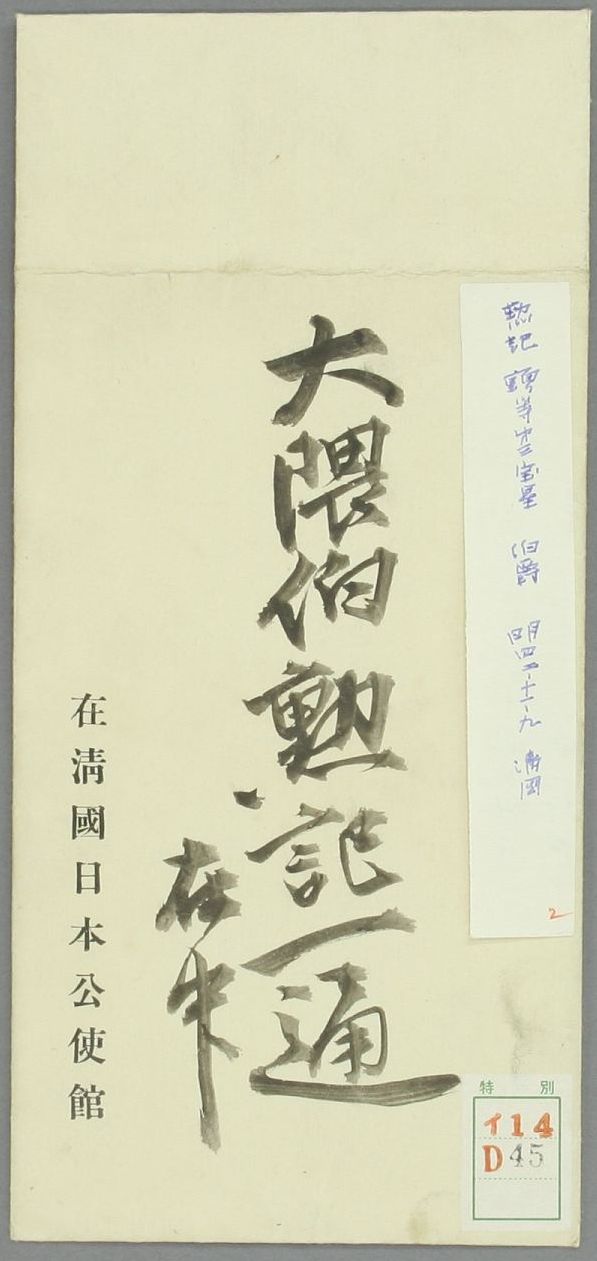 勲記 宝星 伯爵 清国
2
大隈伯勲記一通
在中
在清國日本公使館
特別
イ14
D45